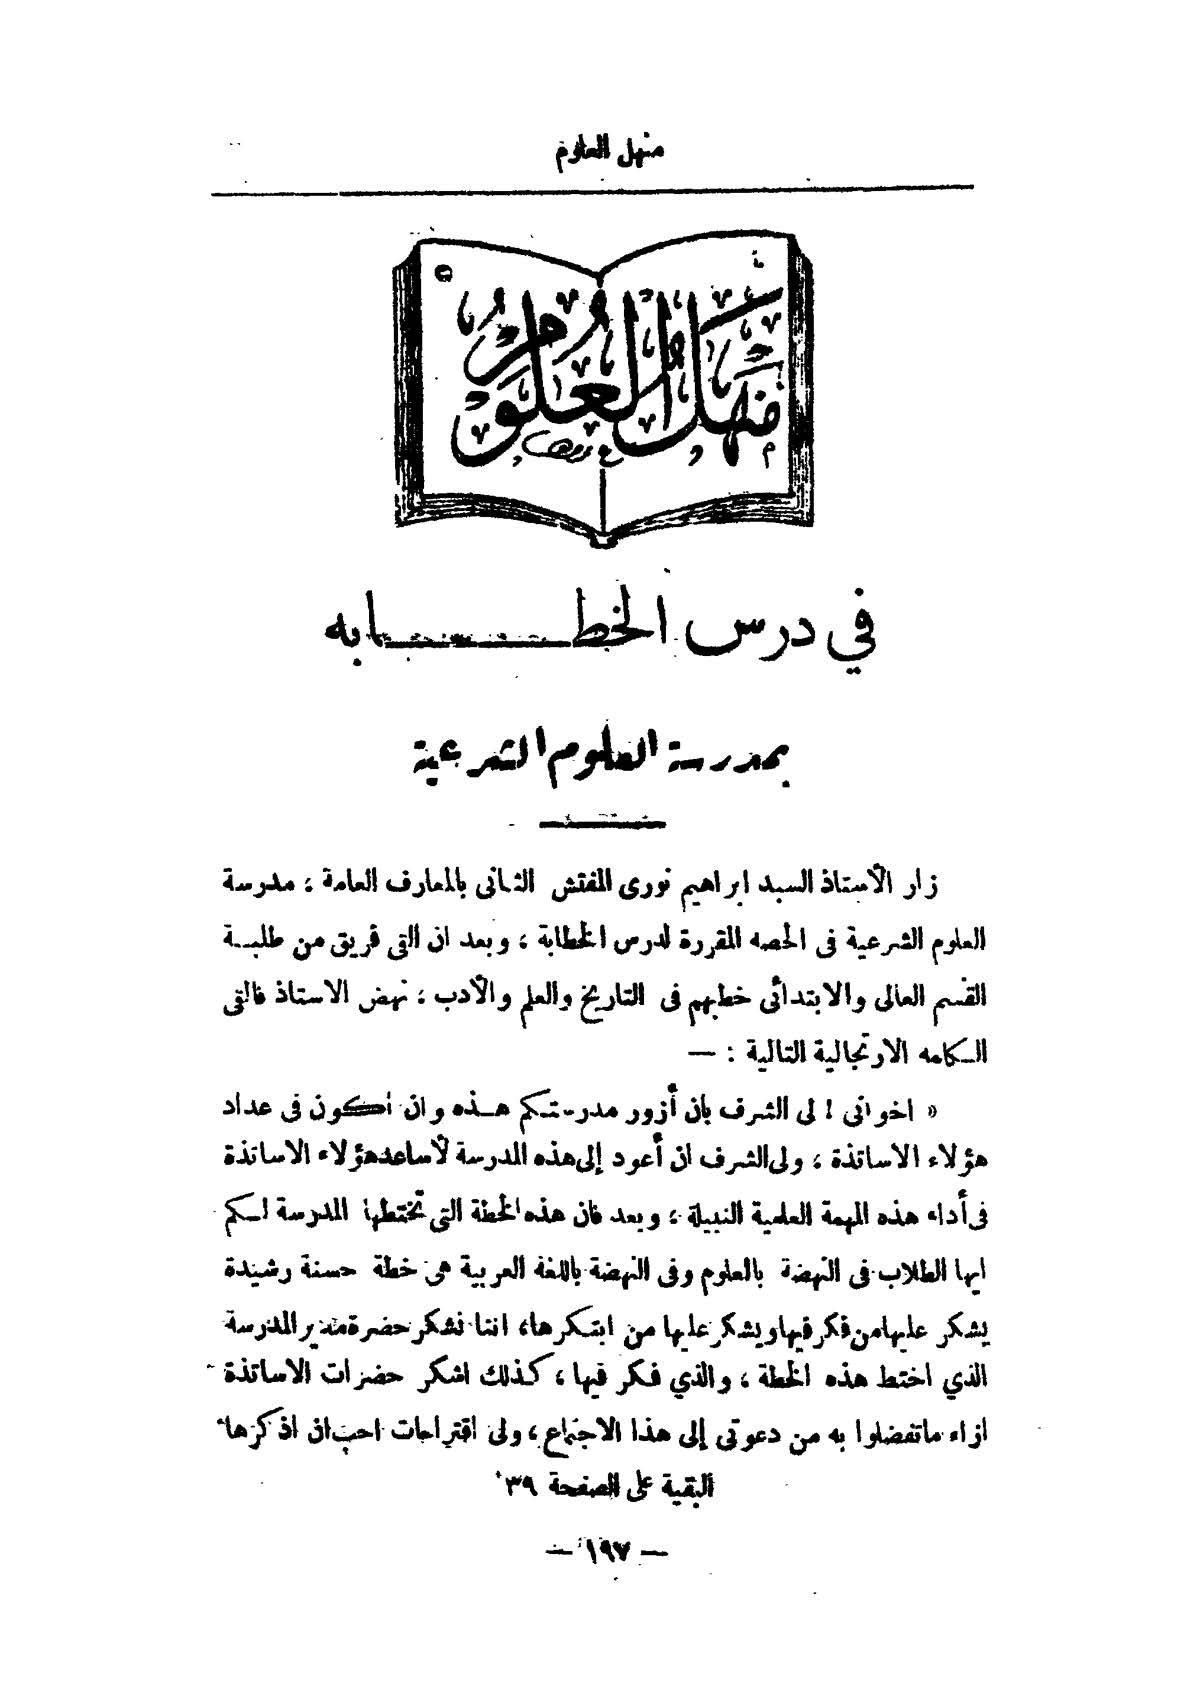 منهل العلوم
منهل العلوم
في درس الخطـــــــابه
بمدرسة العلوم الشرعية
زار الأستاذ السيد ابراهيم نورى المفتش الثانى بالمعارف العامة ؛ مدرسة
العلوم الشرعية فى الحصه المقررة لدرس الخطابة ، وبعد ان القى فريق من طلبـة
القسم العالى والابتدائى خطبهم فى التاريخ والعلم والأدب ؛ نهض الاستاذ فالقى
الـكلمه الارتجالية التالية : —
« اخوانى ! لى الشرف بان أزور مدرستـكم هـذه وان اكون فى عداد
هؤلاء الاساتذة ، ولى الشرف ان أعود إلى هذه المدرسة لأساعد هؤلاء الاساتذة
فى أداء هذه المهمة العلمية النبيلة ؛ وبعد فان هذه الخطة التى تختطها المدرسة لـكم
ايها الطلاب فى النهضة بالعلوم وفى النهضة باللغة العربية هى خطة حسنة رشيدة
يشكر عليها من فكر فيها ويشكر عليها من ابتـكرها، اننا نشكر حضرة مدير المدرسة
الذي اختط هذه الخطة ، والذي فـكر فيها ، كذلك اشكر حضرات الاساتذة
ازاء ماتفضلوا به من دعوتى إلى هذا الاجتماع ، ولى اقتراحات احب ان اذكرها
البقية على الصفحة ٣٩
— ١٩٧ —